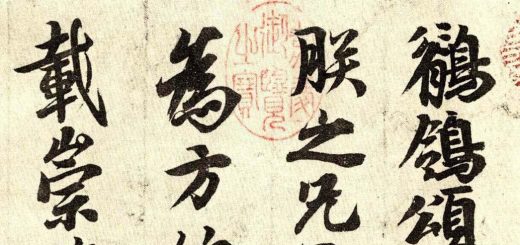 鶺鴒頌
朕之兄
為方
載崇